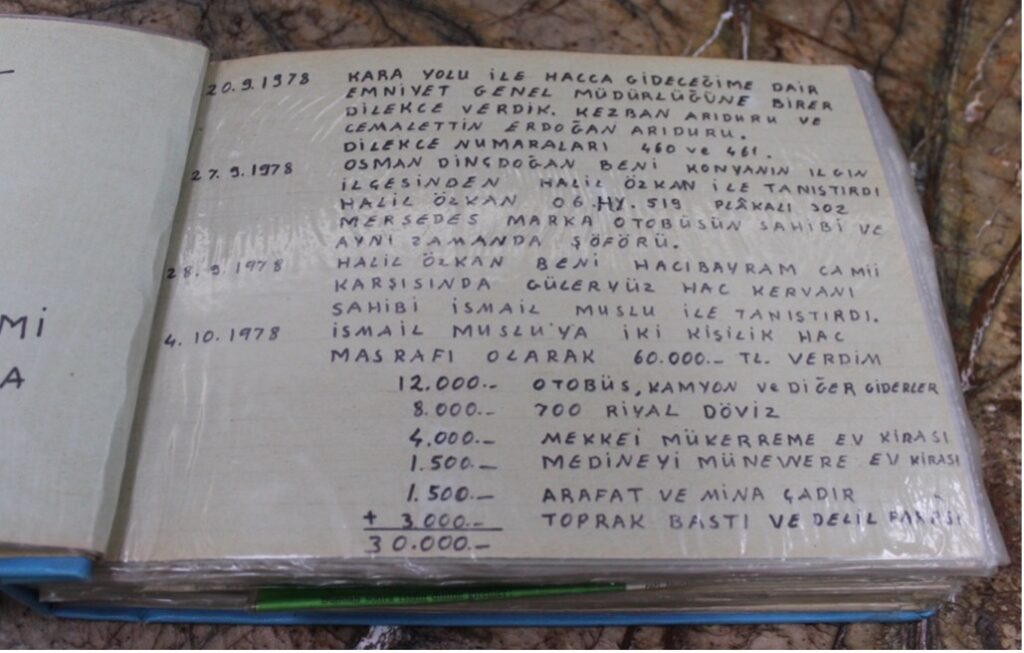 Mİ
A
20.9.1978 KARA YOLU İLE HACCA GİDECEĞİME DAİR
EMNİYET GENEL MÜDÜRLÜĞÜNE BİRER
DİLEKCE VERDİK. KEZBAN ARIDURU VE
CEMALETTİN ERDOĞAN ARIDURU.
DİLEKCE NUMARALARI 460 ve 461.
27.9.1978 OSMAN DİNÇDOĞAN BENİ KONYANIN ILGIN
İLÇESİNDEN HALİL ÖZKAN İLE TANIŞTIRDI
HALİL ÖZKAN 06.HY.519 PLÂKALI 302
MERSEDES MARKA OTOBÜSÜN SAHİBİ VE
AYNI ZAMANDA ŞÖFÖRÜ.
28.9.1978 HALİL ÖZKAN BENİ HACIBAYRAM CAMİİ
KARŞISINDA GÜLERYÜZ HAC KERVANI
SAHİBİ İSMAİL MUSLU İLE TANIŞTIRDI.
4.10.1978 İSMAİL MUSLU'YA İKİ KİŞİLİK HAC
MASRAFI OLARAK 60.000.- TL. VERDİM
12.000.- OTOBÜS, KAMYON ve DİĞER GİDERLER
8.000.- 700 RİYAL DÖVİZ
4.000.- MEKKEİ MÜKERREME EV KİRASI
1.500.- MEDİNEYİ MÜNEVVERE EV KİRASI
1.500.- ARAFAT VE MİNA ÇADIR
+ 3.000.- TOPRAK BASTI VE DELİL PARASI
30.000.-